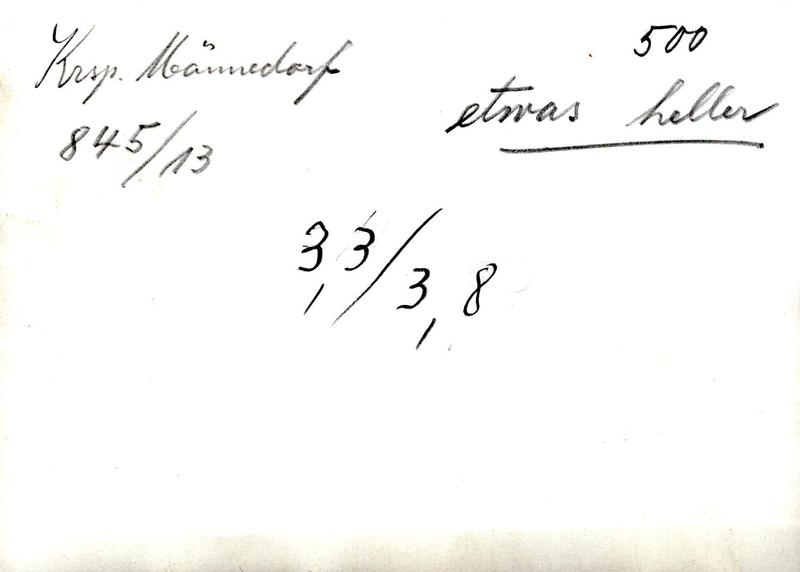 Krsp. Männedorf
845/13
500
etwas heller
3,3/3,8